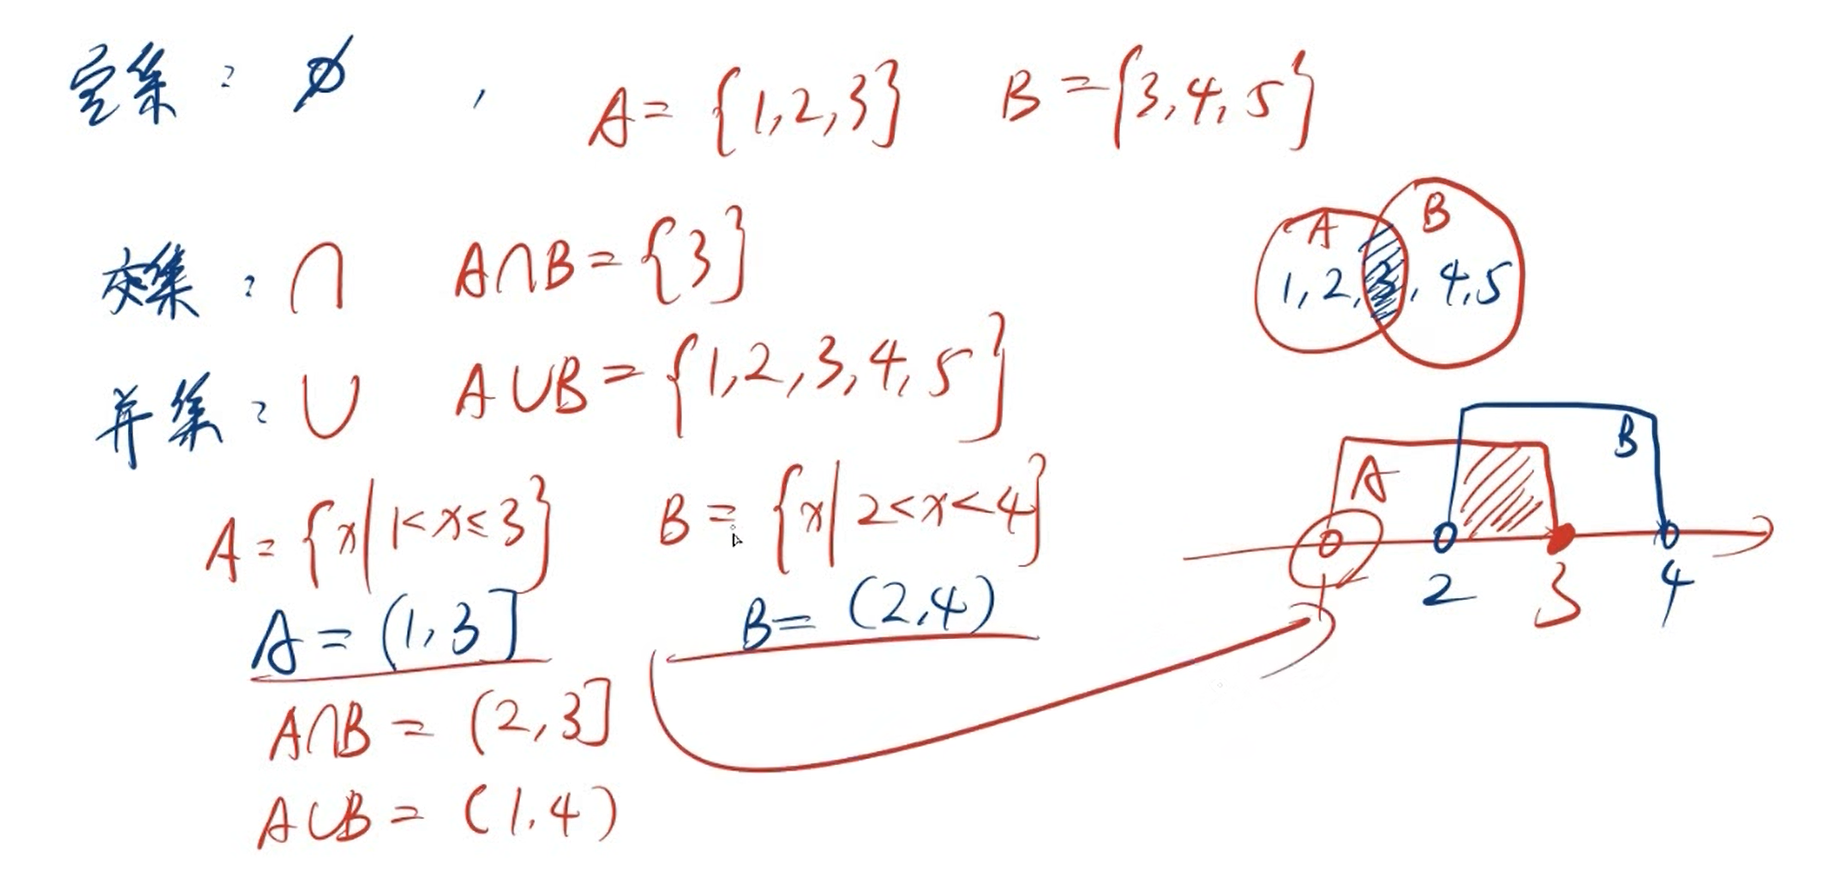 空集：∅ , A = {1,2,3} B = {3,4,5}
交集：∩ A∩B = {3}
并集：∪ A∪B = {1,2,3,4,5}
A B
1,2,3,4,5
A = {x|1<x≤3} B = {x|2<x<4}
A = (1,3] B = (2,4)
A∩B = (2,3]
A∪B = (1,4)
A B
1 2 3 4